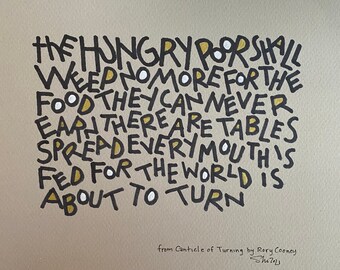 the HUNGRY POOR SHALL
WEEP NO MORE FOR THE
FOOD THEY CAN NEVER
EARN THERE ARE TABLES
SPREAD EVERY MOUTH IS
FED FOR THE WORLD IS
ABOUT TO TURN
from Canticle of Turning by Rory Cooney